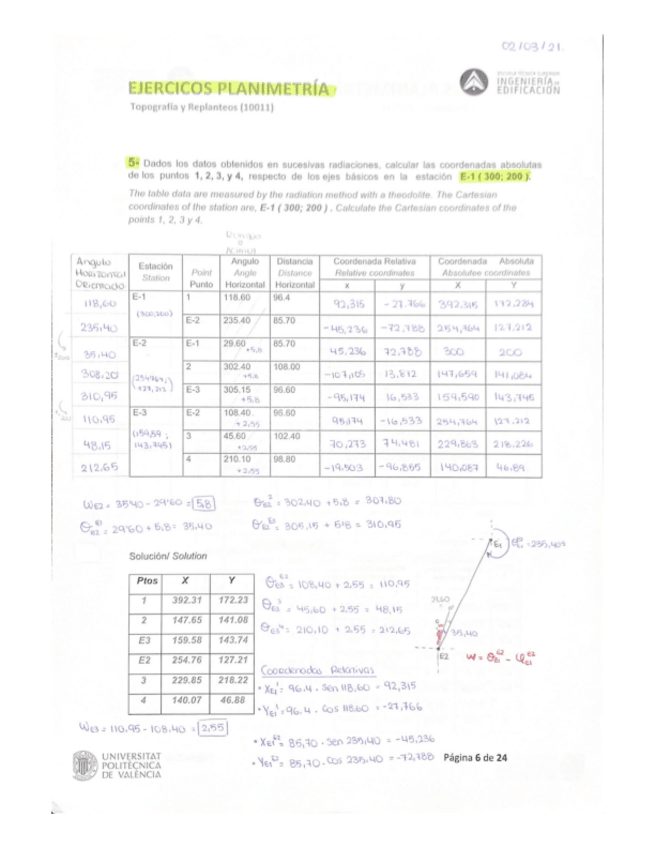 02/03/21.
EJERCICOS PLANIMETRÍA
Topografía y Replanteos (10011)
ESCUELA TÉCNICA SUPERIOR
INGENIERÍA DE
EDIFICACIÓN
5- Dados los datos obtenidos en sucesivas radiaciones, calcular las coordenadas absolutas
de los puntos 1, 2, 3, y 4, respecto de los ejes básicos en la estación E-1 ( 300; 200 ).
The table data are measured by the radiation method with a theodolite. The Cartesian
coordinates of the station are, E-1 ( 300; 200 ) . Calculate the Cartesian coordinates of the
points 1, 2, 3 y 4.
Angulo Horizontal Orientado | Estación Station | Point Punto | Angulo Angle Horizontal | Distancia Distance Horizontal | Coordenada Relativa Relative coordinates x y | Coordenada Absoluta Absolutee coordinates X Y
118,60 E-1 (300,200) 1 118.60 96.4 92,315 -27.766 392,315 172,234
235,40 E-2 235.40 85.70 -45,236 -72,788 254,764 127,212
35,40 E-2 E-1 29.60 +5,8 85.70 45,236 72,788 300 200
308,20 2 302.40 +5,8 108.00 -107,105 13,812 147,659 141,084
310,95 E-3 305.15 +5,8 96.60 -95,174 16,533 159,590 143,745
110,95 E-3 (159,59; 143,745) E-2 108.40 +2,55 96.60 95,174 -16,533 254,764 127,212
48,15 3 45.60 +2,55 102.40 70,273 74,481 229,863 218,226
212,65 4 210.10 +2,55 98.80 -19,503 -96,855 140,087 46,89
WE2 = 35'40 - 29'60 = 5,8
θE2² = 302,40 + 5,8 = 307,80
θE2E1 = 29'60 + 5,8 = 35,40
θE2E3 = 305,15 + 5'8 = 310,95
E1
= 235,40g
Solución/ Solution
Ptos X Y
1 392.31 172.23
2 147.65 141.08
E3 159.58 143.74
E2 254.76 127.21
3 229.85 218.22
4 140.07 46.88
θE3E2 = 108,40 + 2,55 = 110,95
θE3³ = 45,60 + 2,55 = 48,15
θE3⁴ = 210,10 + 2,55 = 212,65
35,40
E2
W = θE1E2 - φE1E2
Coordenadas Relativas
• XE1¹ = 96.4 . Sen 118,60 = 92,315
• YE1¹ = 96.4 . Cos 118,60 = -27,766
WE3 = 110,95 - 108,40 = 2,55
• XE1E2 = 85,70 . Sen 235,40 = -45,236
• YE1E2 = 85,70 . Cos 235,40 = -72,788
UNIVERSITAT
POLITÈCNICA
DE VALÈNCIA
Página 6 de 24